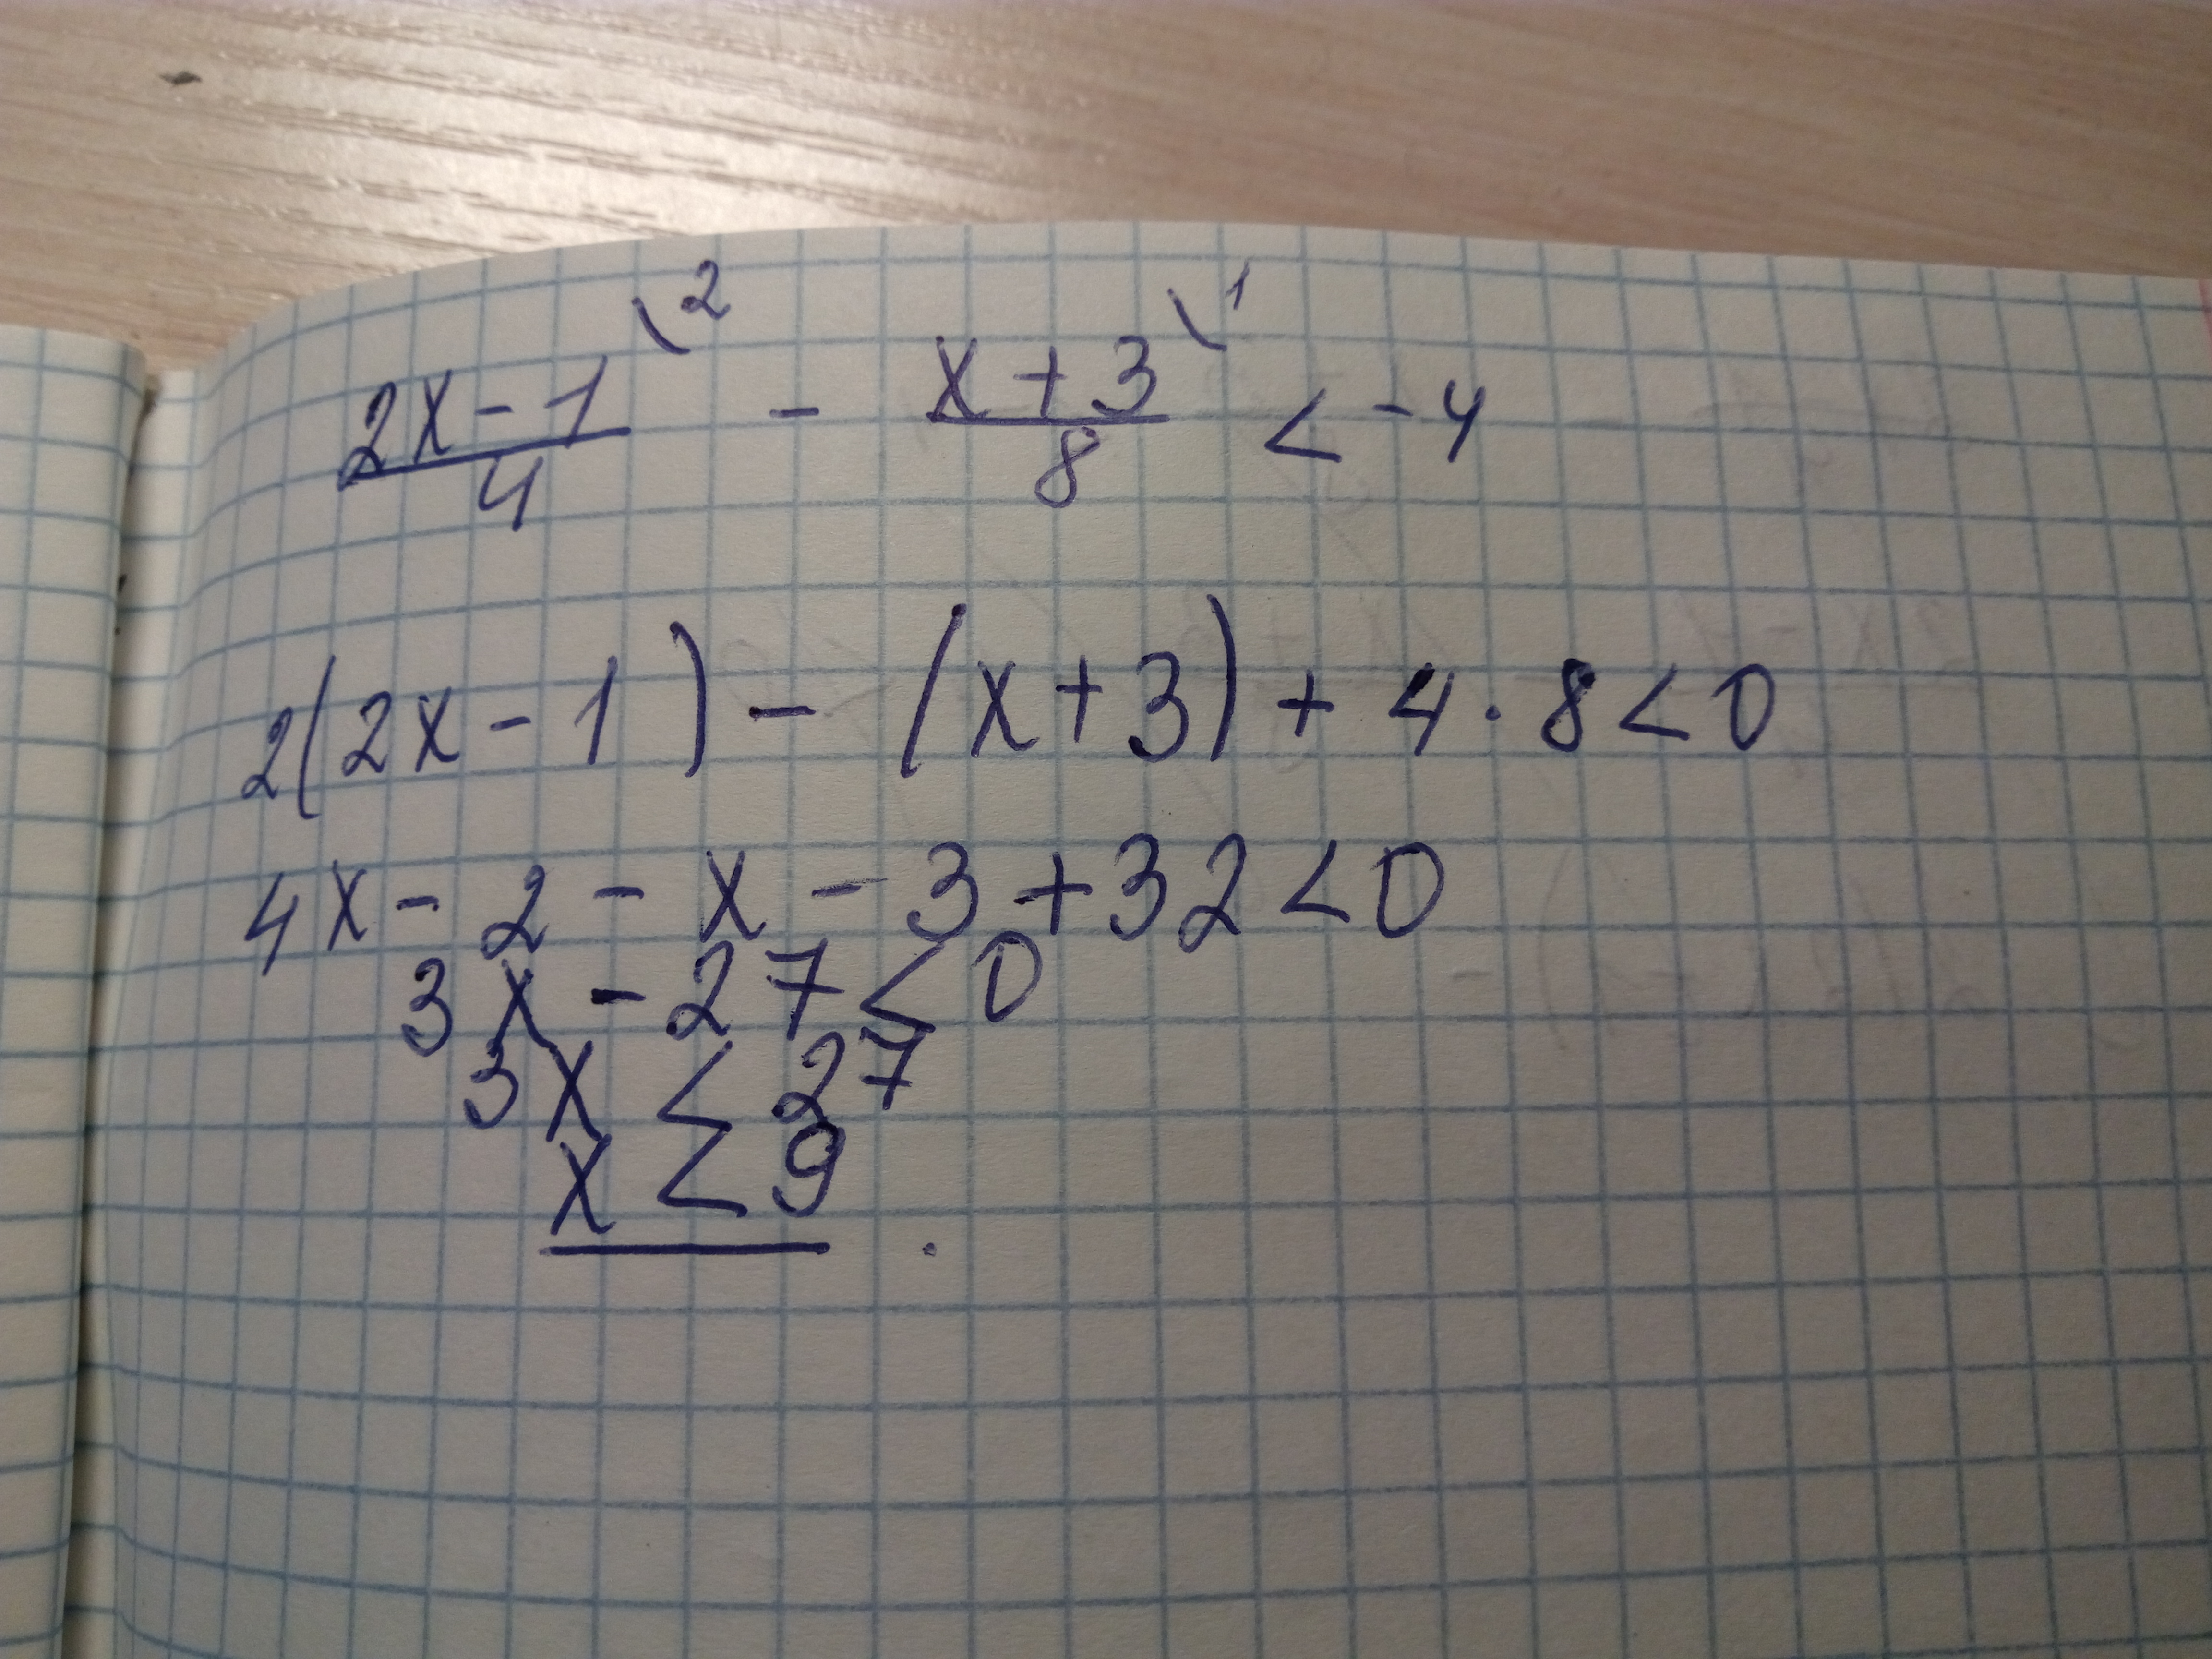 2x-1\2 / 4 - x+3\1 / 8 < -4
2(2x-1) - (x+3) + 4·8<0
4x-2-x-3+32<0
3x-27<0
3x<27
x<9